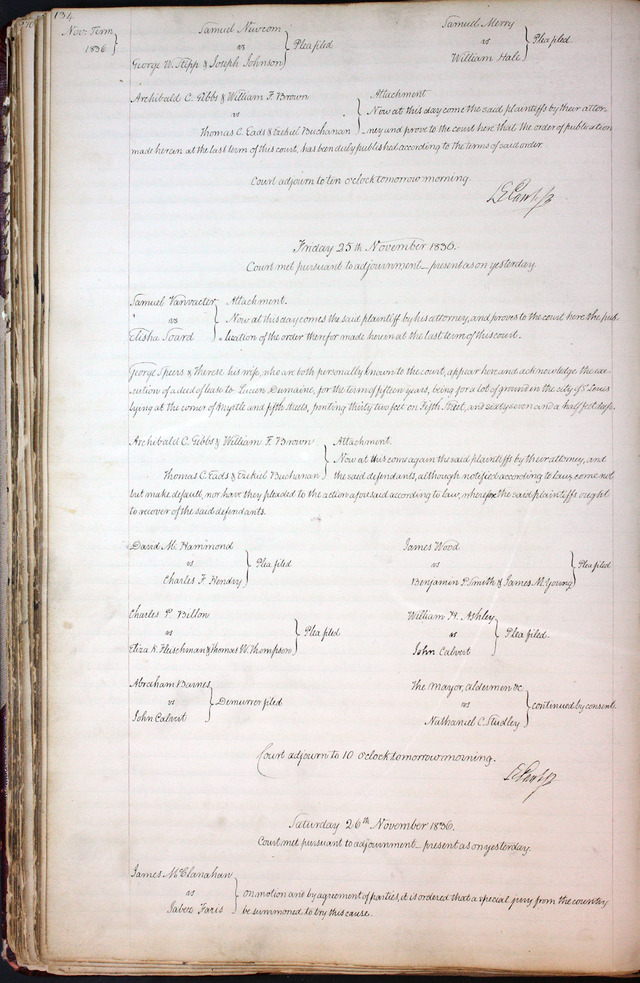 134
Nov: Term
1836
Samuel Newcom
vs
George W. Stipp & Joseph Johnson
Plea filed
Samuel Merry
vs
William Hale
Plea filed.
Archibald C. Gibbs & William F. Brown
vs
Thomas C. Eads & Ezekiel Buchanan
Attachment
Now at this day come the said plaintiffs by their attor-
ney and prove to the court here that the order of publication
made herein at the last term of this court, has been duly published according to the terms of said order.
Court adjourn to ten o'clock tomorrow morning.
Friday 25th November 1836.
Court met pursuant to adjournment_present as on yesterday.
Samuel Vanvacter
vs
Elisha Soard
Attachment.
Now at this day comes the said plaintiff by his attorney, and proves to the court here the pub
lication of the order therefor made herein at the last term of this court.
George Speers & Therese his wife, who are both personally known to the court, appear here and acknowledge the exe-
cution of a deed of lease to Lucien Dumaine, for the term of fifteen years, being for a lot of ground in the city of St Louis
lying at the corner of Myrtle and fifth streets, fronting thirty two feet on Fifth Street, and sixty seven and a half feet deep.
Archibald C. Gibbs & William F. Brown
vs
Thomas C. Eads & Ezekiel Buchanan
Attachment.
Now at this come again the said plaintiffs by their attorney, and
the said defendants, although notified according to Law, come not
but make default, nor have they pleaded to the action aforesaid according to law, wherefor the said plaintiffs ought
to recover of the said defendants.
David M. Hammond
vs
Charles F. Hendry
Plea filed
James Wood
vs
Benjamin P. Smith & James M. Young
Plea filed
Charles P. Billon
vs
Eliza R. Fleischman & Thomas W. Thompson
Plea filed
William H. Ashley
vs
John Calvert
Plea filed.
Abraham Barnes
vs
John Calvert
Demurrer filed
The Mayor, Aldermen &c
vs
Nathaniel C. Studley
continued by consent.
Court adjourn to 10 o'clock tomorrow morning.
Saturday 26th November 1836.
Court met pursuant to adjournment_present as on yesterday.
James McClanahan
vs
Jaber Faris
on motion and by agreement of parties, it is ordered that a special jury from the country
be summoned to try this cause.